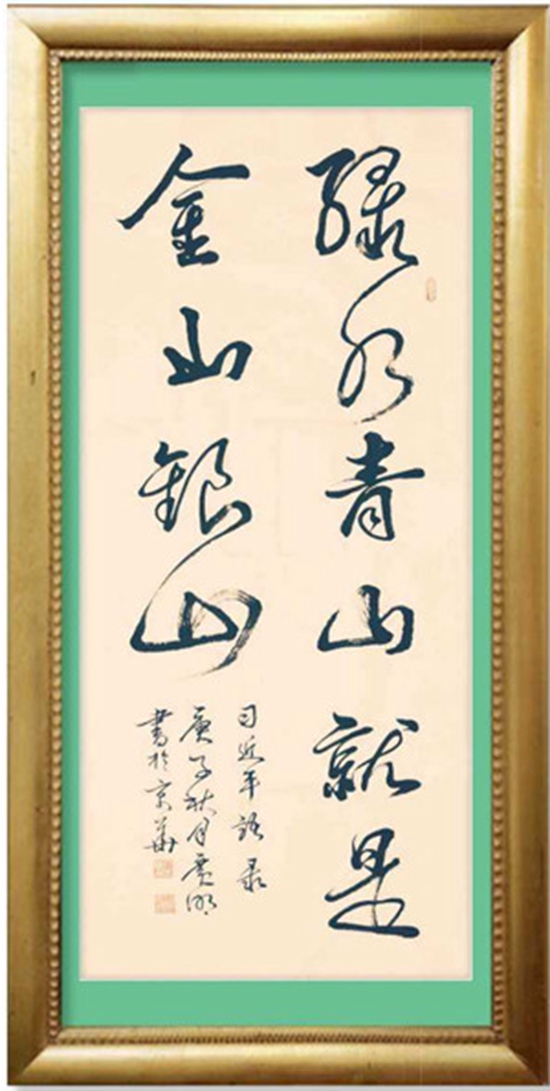 绿水青山就是
金山银山
习近平语录
庚子秋月
書於京華